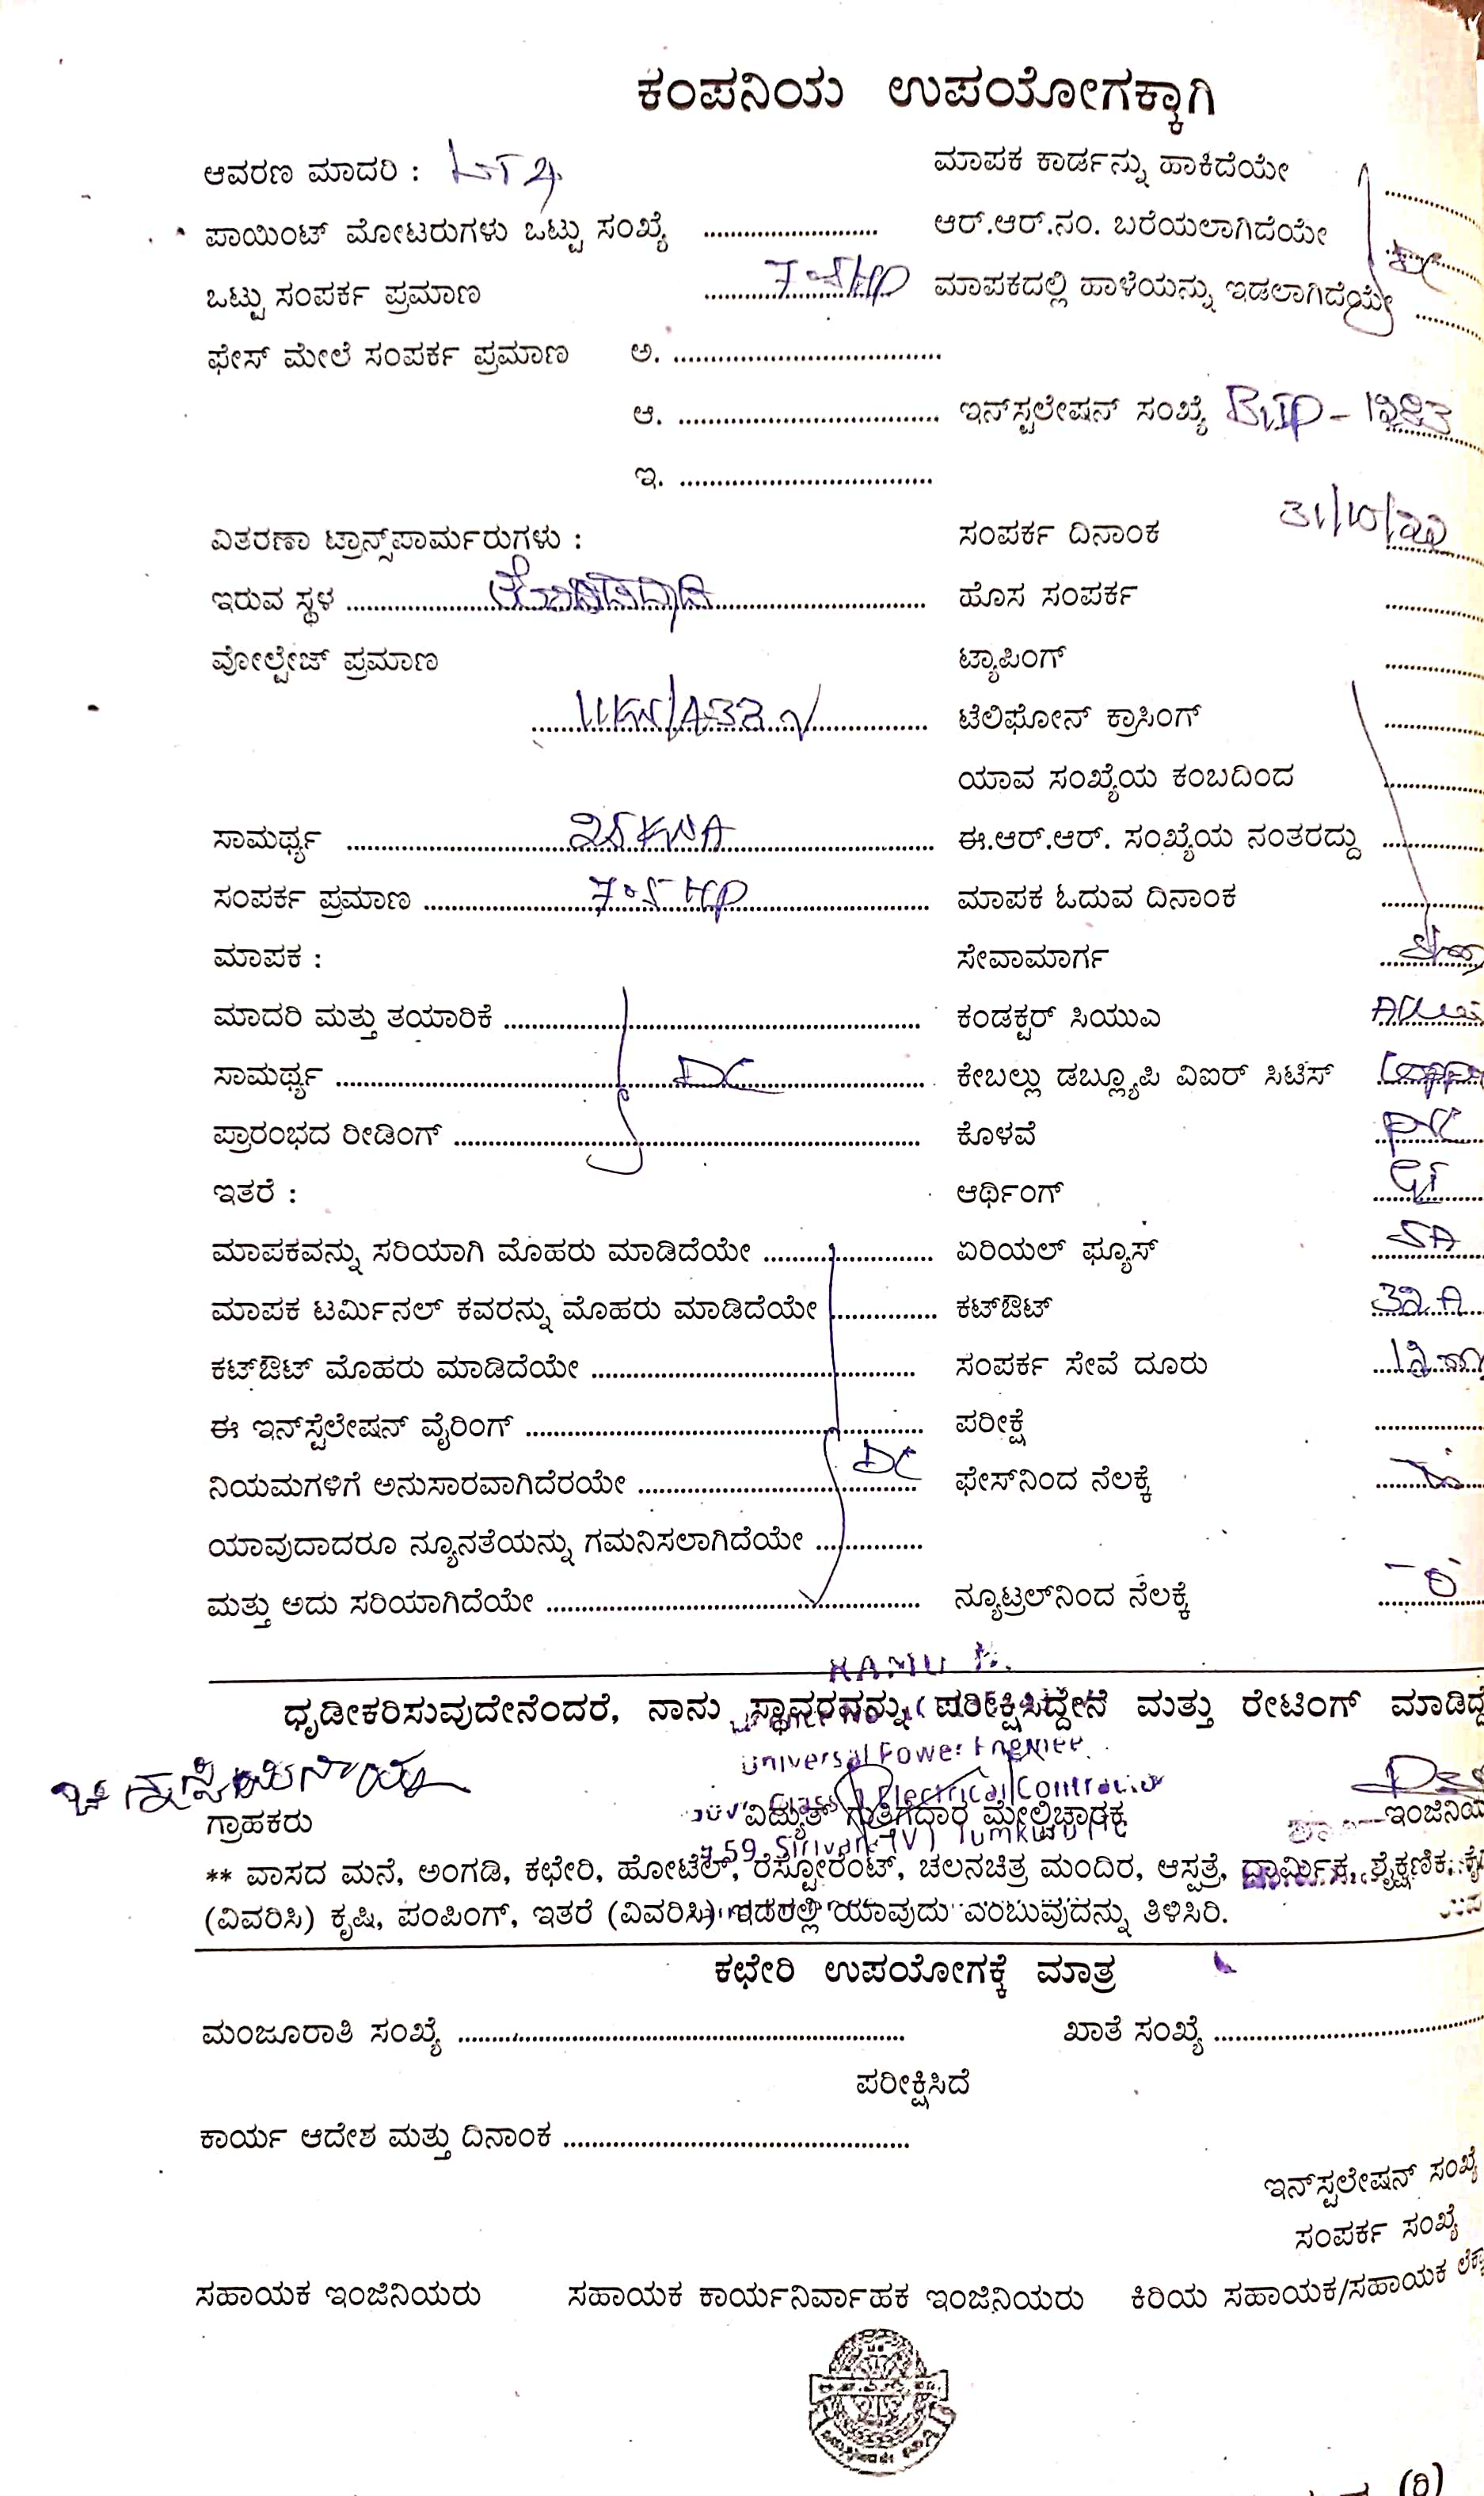 ಕಂಪನಿಯ ಉಪಯೋಗಕ್ಕಾಗಿ
ಆವರಣ ಮಾದರಿ : LT 4 ಮಾಪಕ ಕಾರ್ಡನ್ನು ಹಾಕಿದೆಯೇ ....................
ಪಾಯಿಂಟ್ ಮೋಟರುಗಳು ಒಟ್ಟು ಸಂಖ್ಯೆ .............................. ಆರ್.ಆರ್.ನಂ. ಬರೆಯಲಾಗಿದೆಯೇ
ಒಟ್ಟು ಸಂಪರ್ಕ ಪ್ರಮಾಣ 7.5HP ಮಾಪಕದಲ್ಲಿ ಹಾಳೆಯನ್ನು ಇಡಲಾಗಿದೆಯೇ ............
ಫೇಸ್ ಮೇಲೆ ಸಂಪರ್ಕ ಪ್ರಮಾಣ ಅ. ..............................................
ಆ. .............................................. ಇನ್‌ಸ್ಟಲೇಷನ್ ಸಂಖ್ಯೆ
ಇ. ............................................
ವಿತರಣಾ ಟ್ರಾನ್ಸ್‌ಪಾರ್ಮರುಗಳು : ಸಂಪರ್ಕ ದಿನಾಂಕ 31/10/20
ಇರುವ ಸ್ಥಳ ಹೊಸ ಸಂಪರ್ಕ ..................
ವೋಲ್ಟೇಜ್ ಪ್ರಮಾಣ ಟ್ಯಾಪಿಂಗ್ ..................
11KV/433 V ಟೆಲಿಫೋನ್ ಕ್ರಾಸಿಂಗ್ ..................
ಯಾವ ಸಂಖ್ಯೆಯ ಕಂಬದಿಂದ ..................
ಸಾಮರ್ಥ್ಯ 25 KVA ಈ.ಆರ್.ಆರ್. ಸಂಖ್ಯೆಯ ನಂತರದ್ದು ..................
ಸಂಪರ್ಕ ಪ್ರಮಾಣ 7.5 HP ಮಾಪಕ ಓದುವ ದಿನಾಂಕ ..................
ಮಾಪಕ : ಸೇವಾಮಾರ್ಗ
ಮಾದರಿ ಮತ್ತು ತಯಾರಿಕೆ .............................. ಕಂಡಕ್ಟರ್ ಸಿಯುಎ
ಸಾಮರ್ಥ್ಯ DC ಕೇಬಲ್ಲು ಡಬ್ಲ್ಯೂಪಿ ವಿಐರ್ ಸಿಟಿಸ್
ಪ್ರಾರಂಭದ ರೀಡಿಂಗ್ .............................. ಕೊಳವೆ
ಇತರೆ : ಆರ್ಥಿಂಗ್
ಮಾಪಕವನ್ನು ಸರಿಯಾಗಿ ಮೊಹರು ಮಾಡಿದೆಯೇ .............................. ಏರಿಯಲ್ ಫ್ಯೂಸ್ 5A
ಮಾಪಕ ಟರ್ಮಿನಲ್ ಕವರನ್ನು ಮೊಹರು ಮಾಡಿದೆಯೇ .................. ಕಟ್‌ಔಟ್ 32 A
ಕಟ್‌ಔಟ್ ಮೊಹರು ಮಾಡಿದೆಯೇ .............................. ಸಂಪರ್ಕ ಸೇವೆ ದೂರು
ಈ ಇನ್‌ಸ್ಟೆಲೇಷನ್ ವೈರಿಂಗ್ .............................. ಪರೀಕ್ಷೆ ..................
ನಿಯಮಗಳಿಗೆ ಅನುಸಾರವಾಗಿದೆರಯೇ DC ಫೇಸ್‌ನಿಂದ ನೆಲಕ್ಕೆ
ಯಾವುದಾದರೂ ನ್ಯೂನತೆಯನ್ನು ಗಮನಿಸಲಾಗಿದೆಯೇ ..................
ಮತ್ತು ಅದು ಸರಿಯಾಗಿದೆಯೇ .............................. ನ್ಯೂಟ್ರಲ್‌ನಿಂದ ನೆಲಕ್ಕೆ
ಧೃಡೀಕರಿಸುವುದೇನೆಂದರೆ, ನಾನು ಸ್ಥಾವರವನ್ನು ಪರೀಕ್ಷಿಸಿದ್ದೇನೆ ಮತ್ತು ರೇಟಿಂಗ್
Universal Power
Class Electrical Contractor
ಗ್ರಾಹಕರು ವಿದ್ಯುತ್ ಗುತ್ತಿಗೆದಾರ ಮೇಲ್ವಿಚಾರಕ
** ವಾಸದ ಮನೆ, ಅಂಗಡಿ, ಕಛೇರಿ, ಹೋಟೆಲ್, ರೆಸ್ಟೋರೆಂಟ್, ಚಲನಚಿತ್ರ ಮಂದಿರ, ಆಸ್ಪತ್ರೆ, ದಾರ್ಮಿಕ, ಶೈಕ್ಷಣಿಕ,
(ವಿವರಿಸಿ) ಕೃಷಿ, ಪಂಪಿಂಗ್, ಇತರೆ (ವಿವರಿಸಿ) ಇದರಲ್ಲಿ ಯಾವುದು ಎಂಬುವುದನ್ನು ತಿಳಿಸಿರಿ.
ಕಛೇರಿ ಉಪಯೋಗಕ್ಕೆ ಮಾತ್ರ
ಮಂಜೂರಾತಿ ಸಂಖ್ಯೆ .............................. ಖಾತೆ ಸಂಖ್ಯೆ ..............................
ಪರೀಕ್ಷಿಸಿದೆ
ಕಾರ್ಯ ಆದೇಶ ಮತ್ತು ದಿನಾಂಕ ..............................
ಇನ್‌ಸ್ಟಲೇಷನ್ ಸಂಖ್ಯೆ
ಸಂಪರ್ಕ ಸಂಖ್ಯೆ
ಸಹಾಯಕ ಇಂಜಿನಿಯರು ಸಹಾಯಕ ಕಾರ್ಯನಿರ್ವಾಹಕ ಇಂಜಿನಿಯರು ಕಿರಿಯ ಸಹಾಯಕ/ಸಹಾಯಕ
(ರಿ)